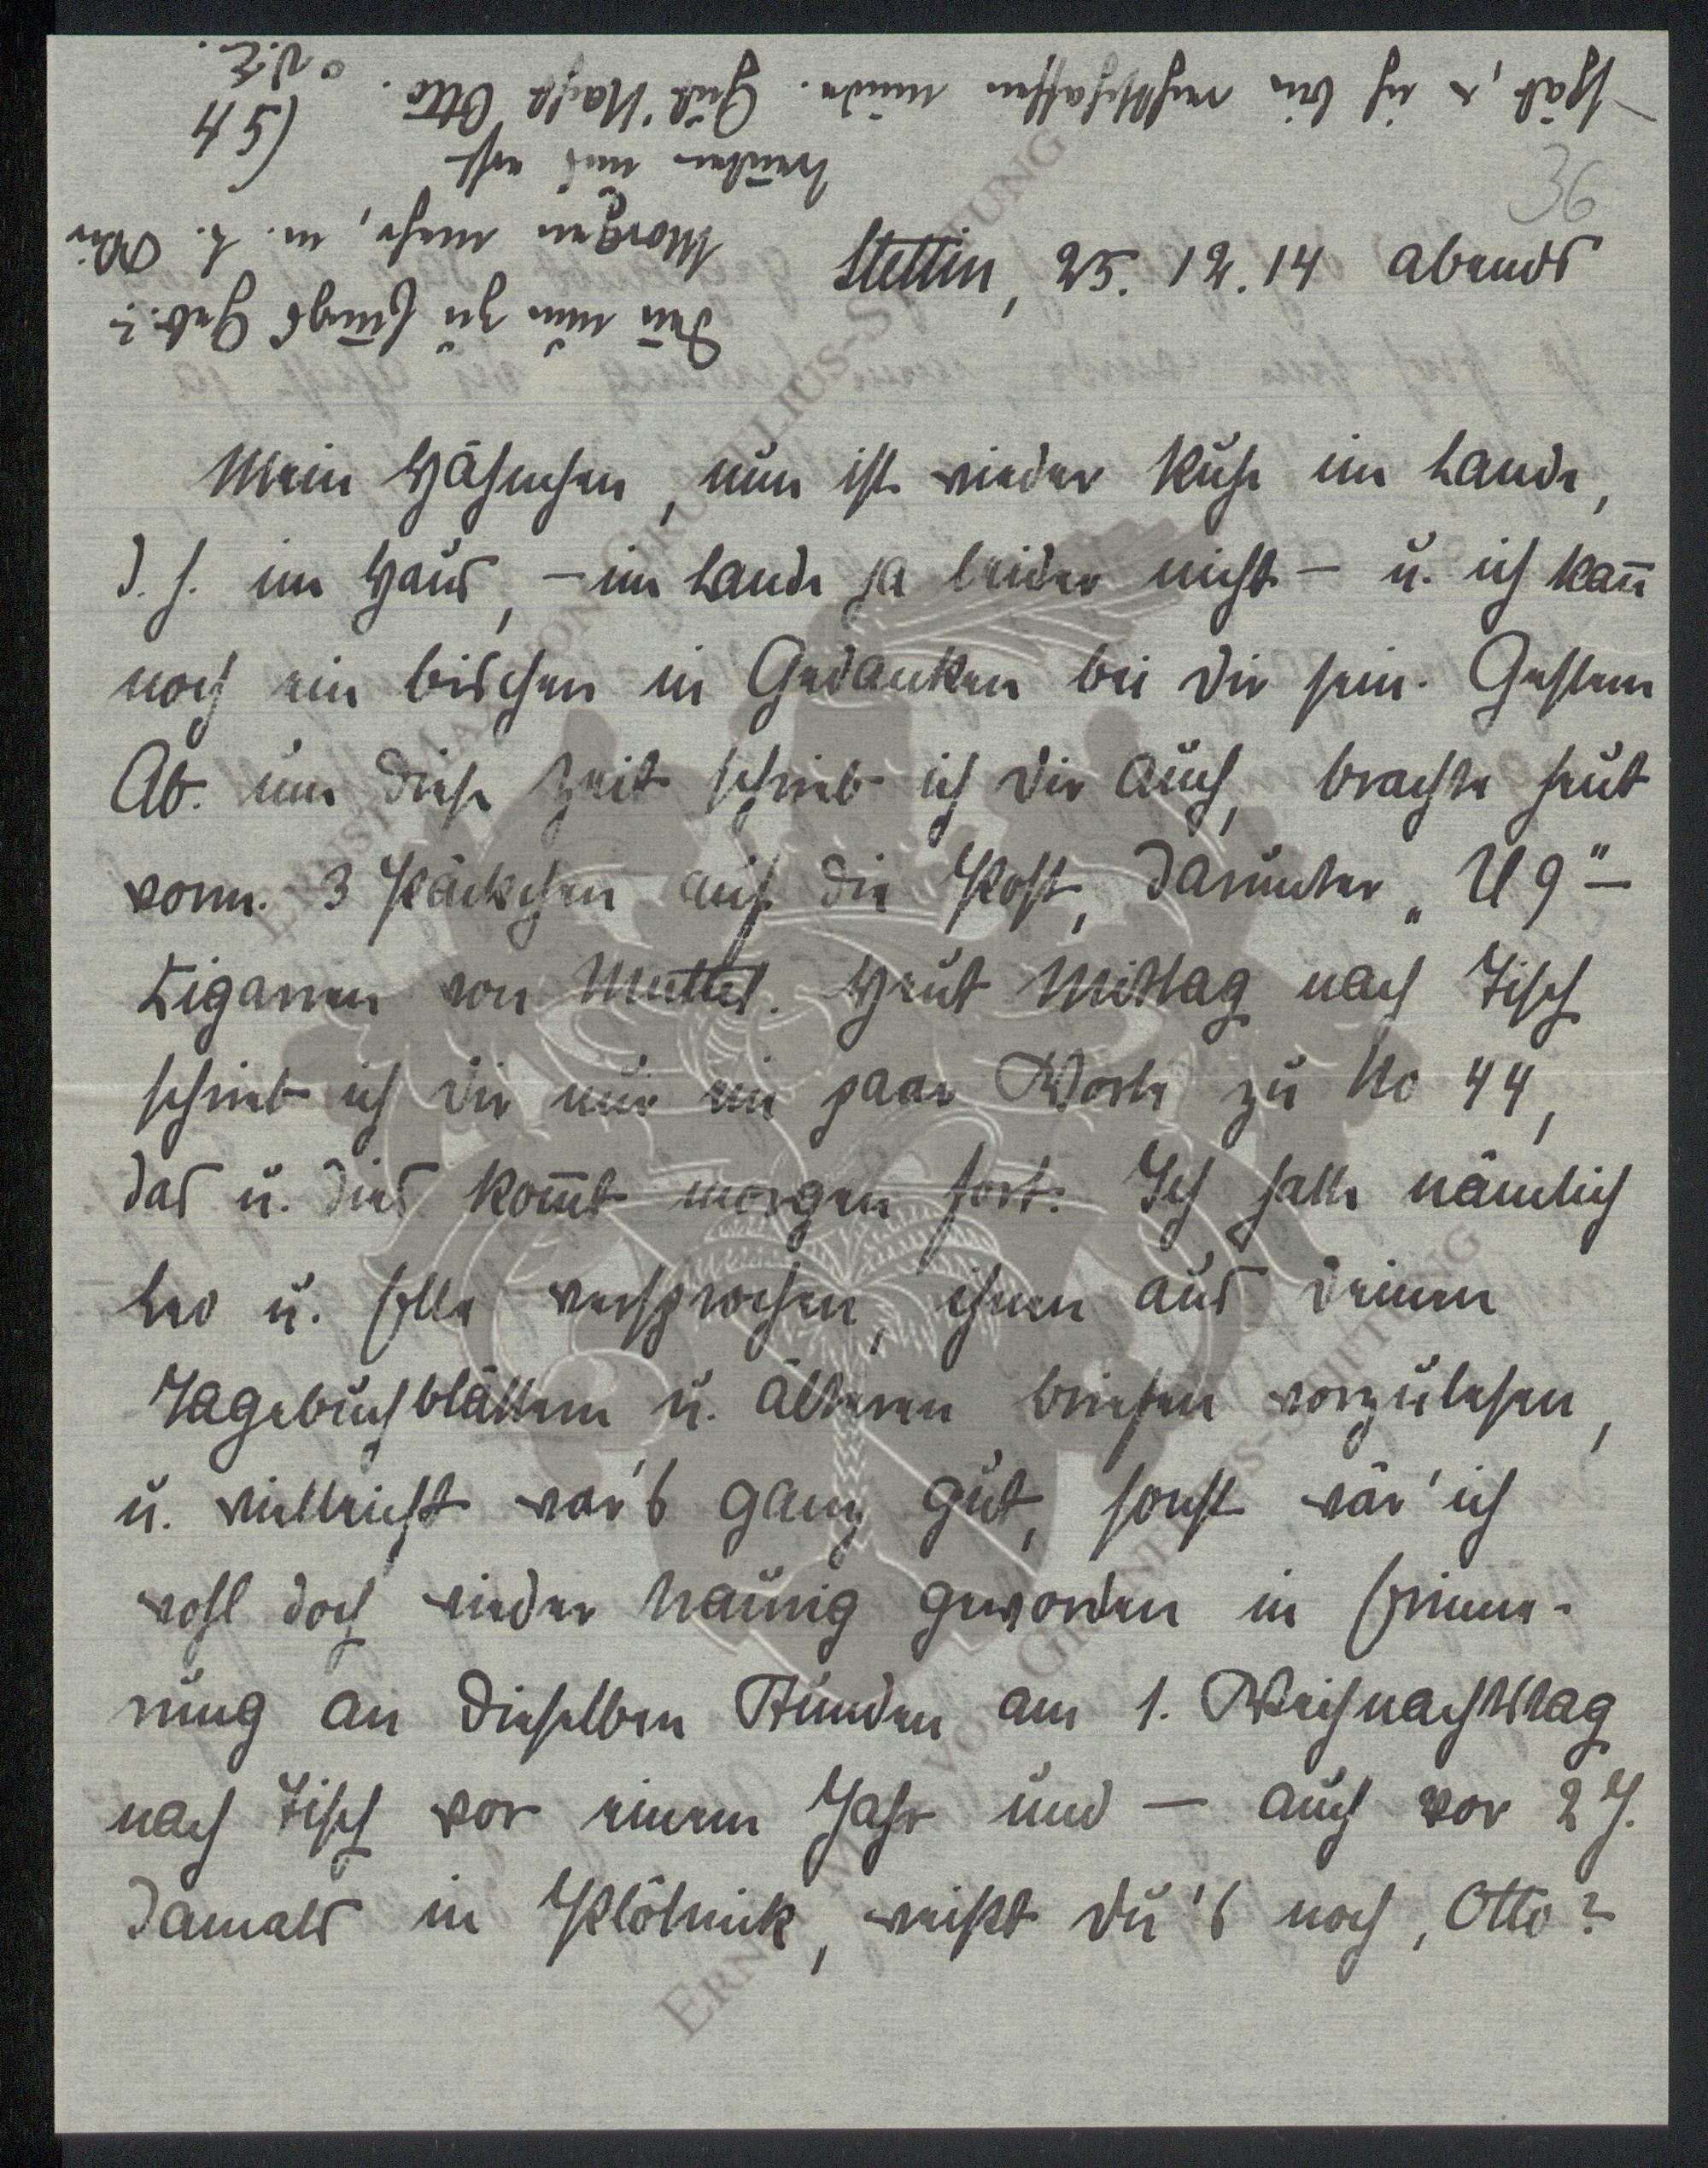 Stettin, 25. 12. 14 abends
36
Mein Häschen, nun ist wieder Ruhe im Lande,
d. h. im Haus, – im Lande ja leider nicht – u. ich kan̄
noch ein bischen in Gedanken bei Dir sein. Gestern
Ab. um diese Zeit schrieb ich Dir auch, brachte heut
vorm. 3 Päckchen auf die Post, darunter „U9"–
Zigarren von Muttel. Heut Mittag nach Tisch
schrieb ich Dir nur ein paar Worte zu No 44,
das u. dies kom̄t morgen fort. Ich hatte nämlich
Leo u. Elle versprochen, ihnen aus Deinen
Tagebuchblättern u. älteren Briefen vorzulesen,
u. vielleicht war's ganz gut, sonst wär' ich
wohl doch wieder traurig geworden in Erinne-
rung an dieselben Stunden am 1. Weihnachtstag
nach Tisch vor einem Jahr und – auch vor 2 J.
Damals in Plötnick, weißt Du's noch, Otto?
Morgen mehr, m. l.
spät, u. ich bin rechtschaffen müde. Gut' Nacht Otto.
D. E.